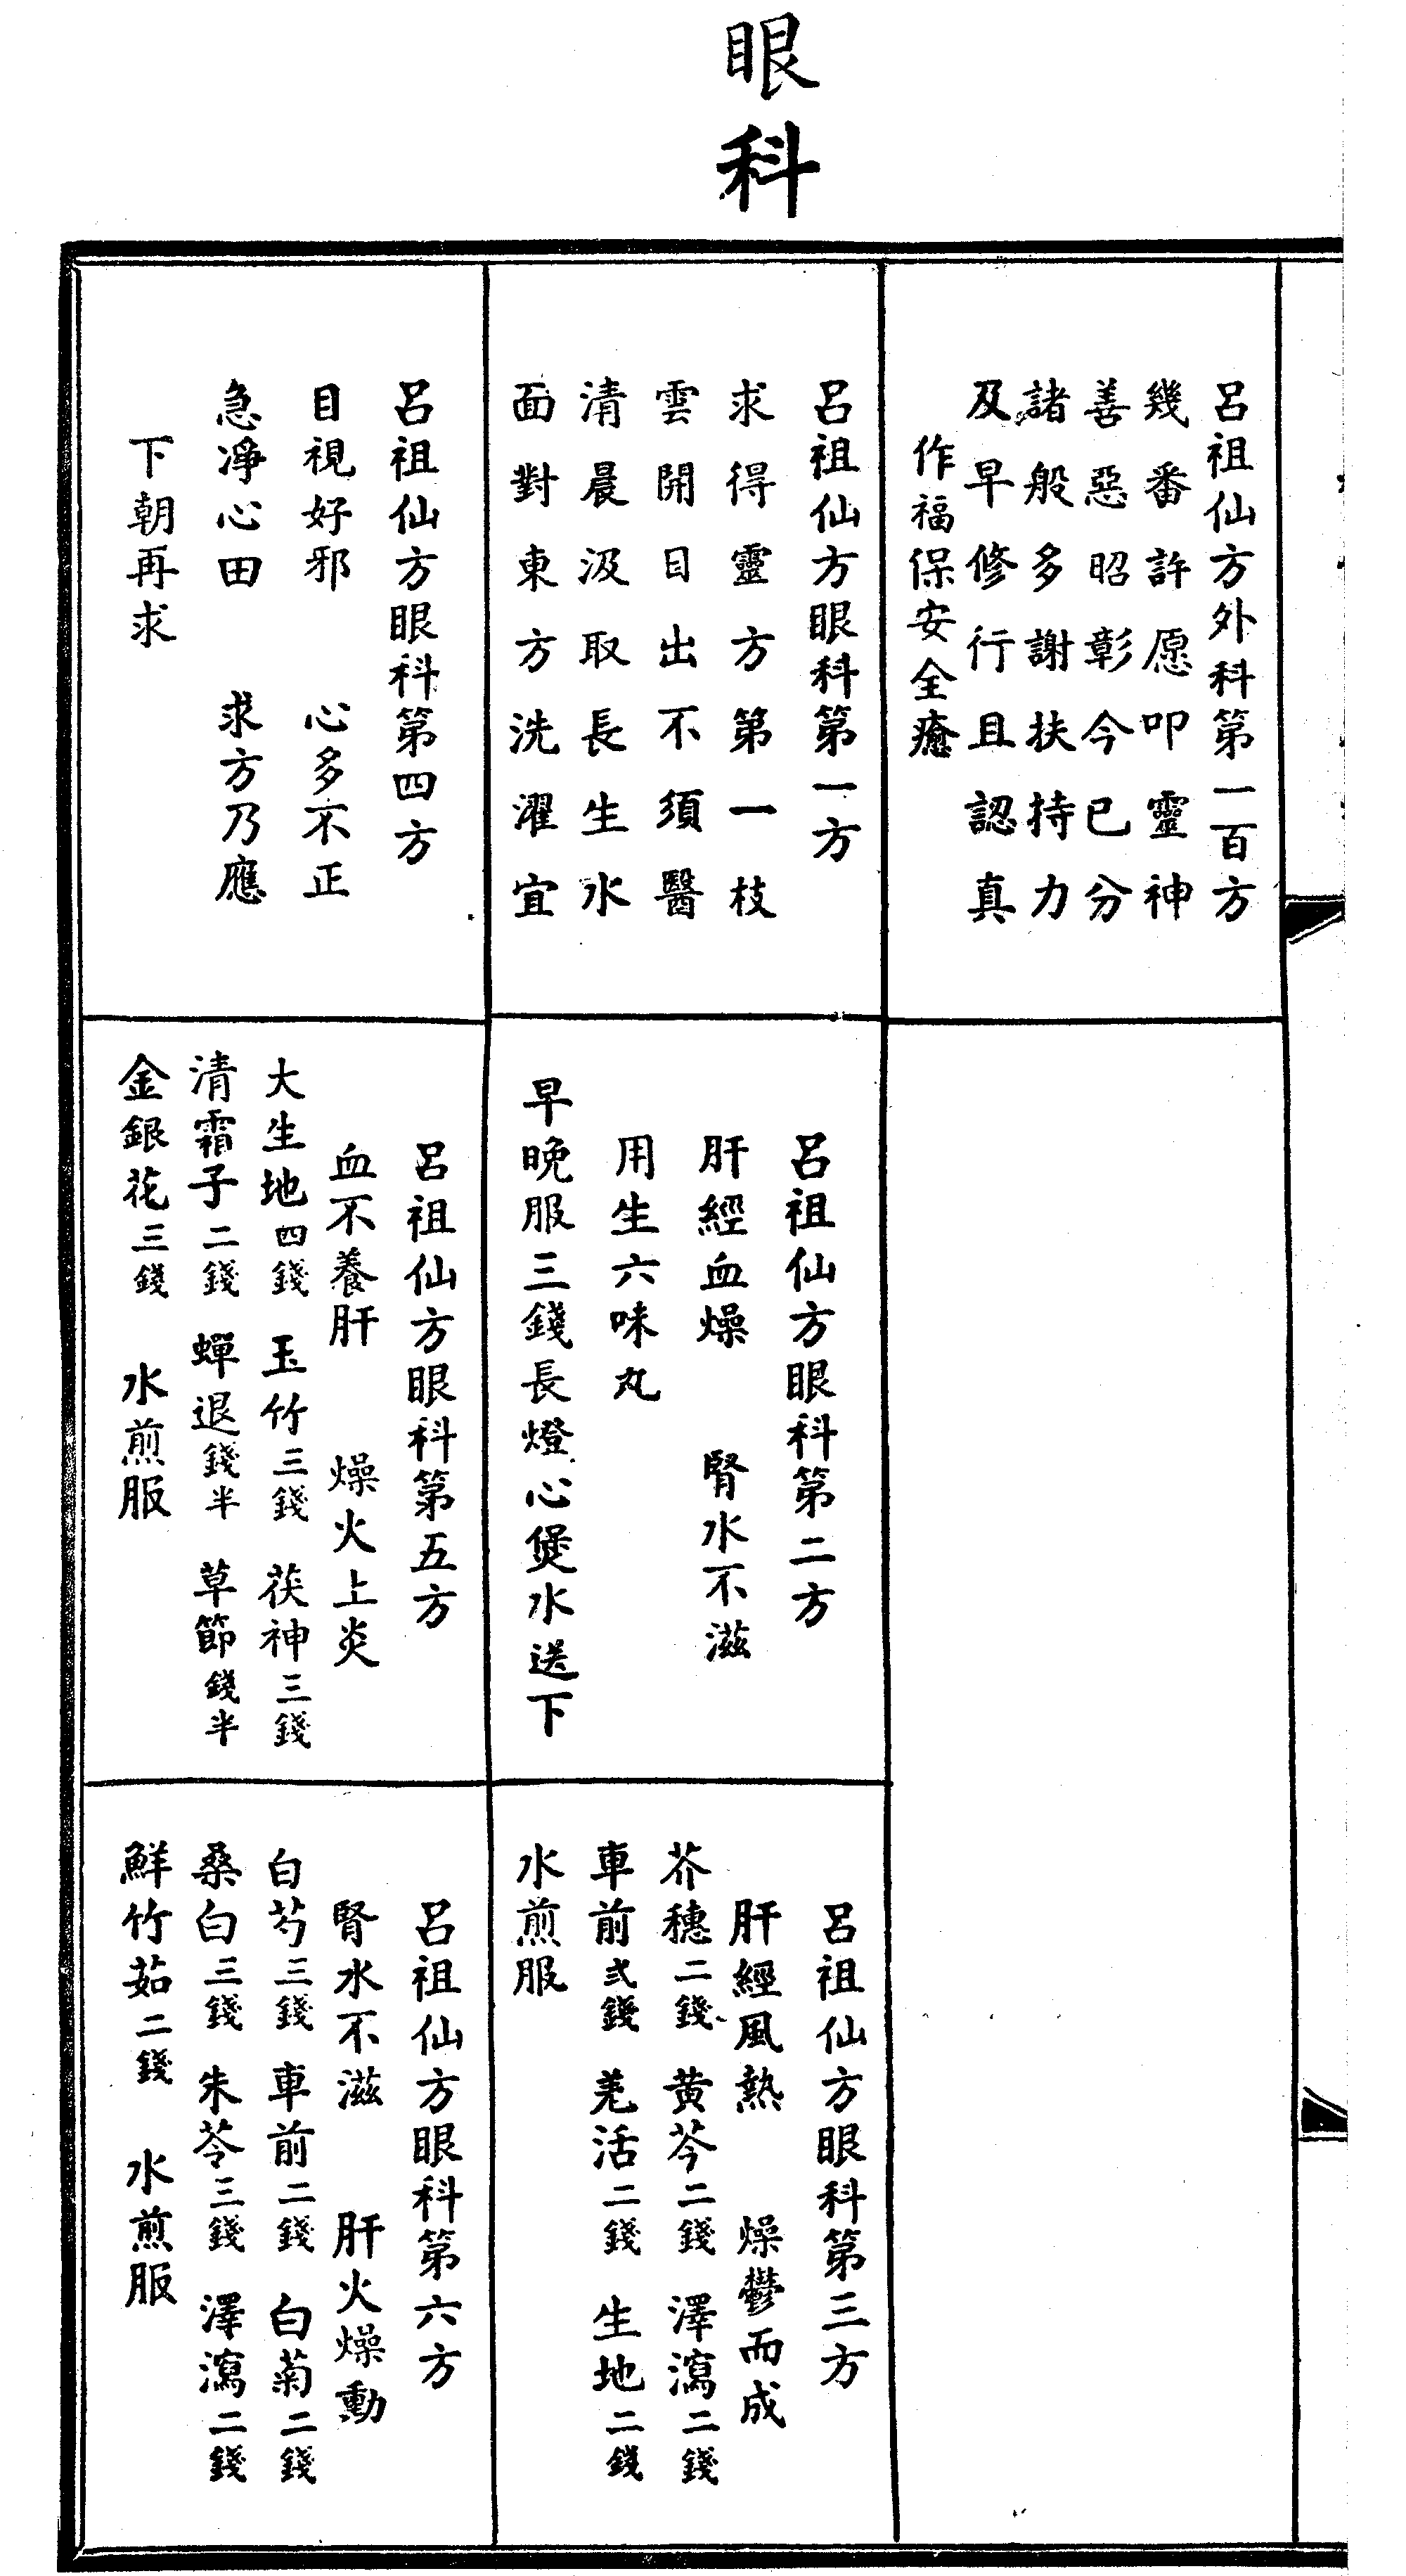 眼科
呂祖仙方外科第一百方
幾番許愿叩靈神
善惡昭彰今已分
諸般多謝扶持力
及早修行且認真
作福保安全癒
呂祖仙方眼科第一方
求得靈方第一枝
雲開目出不須醫
清晨汲取長生水
面對東方洗濯宜
呂祖仙方眼科第二方
肝經血燥　腎水不滋
用生六味丸
早晚服三錢長燈心煲水送下
呂祖仙方眼科第三方
肝經風熱　燥鬱而成
芥穗二錢　黄芩二錢　澤瀉二錢
車前弍錢　羌活二錢　生地二錢
水煎服
呂祖仙方眼科第四方
目視好邪　心多不正
急凈心田　求方乃應
下朝再求
呂祖仙方眼科第五方
血不養肝　燥火上炎
大生地四錢　玉竹三錢　茯神三錢
清霜子二錢　蟬退錢半　草節錢半
金銀花三錢　水煎服
呂祖仙方眼科第六方
腎水不滋　肝火燥動
白芍三錢　車前二錢　白菊二錢
桑白三錢　朱苓三錢　澤瀉二錢
鮮竹茹二錢　水煎服